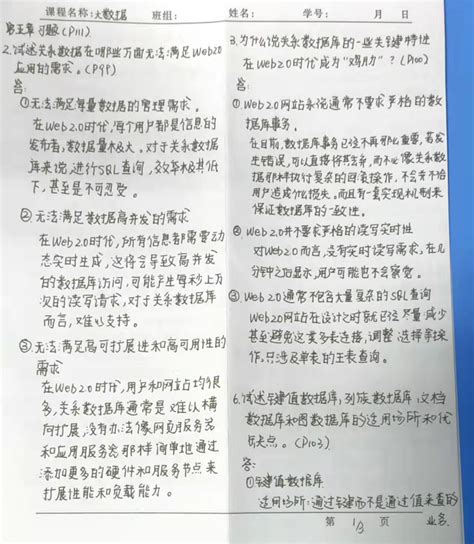 课程名称:大数据 班组: 姓名: 学号: 月 日
第五章习题(P111)
2.试述关系数据库在哪些方面无法满足Web2.0
应用的需求。(P99)
答:
①无法满足海量数据的管理需求。
在Web2.0时代,每个用户都是信息的
发布者,数据量太大。对于关系数据
库来说,进行SQL查询,效率极其低
下,甚至是不可忍受。
②无法满足数据高并发的需求
在Web2.0时代,所有信息都需要动
态实时生成,这将会导致高并发
的数据库访问,可能产生每秒上万
次的读写请求,对于关系数据库
而言,难以支持。
③无法满足高可扩展性和高可用性的
需求
在Web2.0时代,用户和网站均很
多,关系数据库通常是难以横
向扩展,没有办法像网页服务器
和应用服务器那样简单地通过
添加更多的硬件和服务节点来
扩展性能和负载能力。
3.为什么说关系数据库的一些关键特性
在Web2.0时代成为“鸡肋”?(P100)
答:
①Web2.0网站系统通常不要求严格的数
据库事务。
在目前,数据事务已经不再那么重要,若发
生错误,可以直接将其丢弃,而不必像关系数
据那样执行复杂的回滚操作,不会卖不给
用户造成什么损失。而且有一套实现机制来
保证数据库的一致性。
②Web2.0并不要求严格的读写实时性
对Web2.0而言,没有实时读写需求,在几
分钟之后显示,用户可能也不会察觉。
③Web2.0通常不包含大量复杂的SQL查询
Web2.0网站在设计之时就已经尽量减少
甚至避免这类多表连接,调整选择等操
作,只涉及单表的主表查询。
6.试述键值数据库,列族数据库,文档
数据库和图数据库的适用场所和优
缺点。(P103)
答:
①键值数据库
适用场所:通过键而不是通过值来查的
业务
第 1/3 页